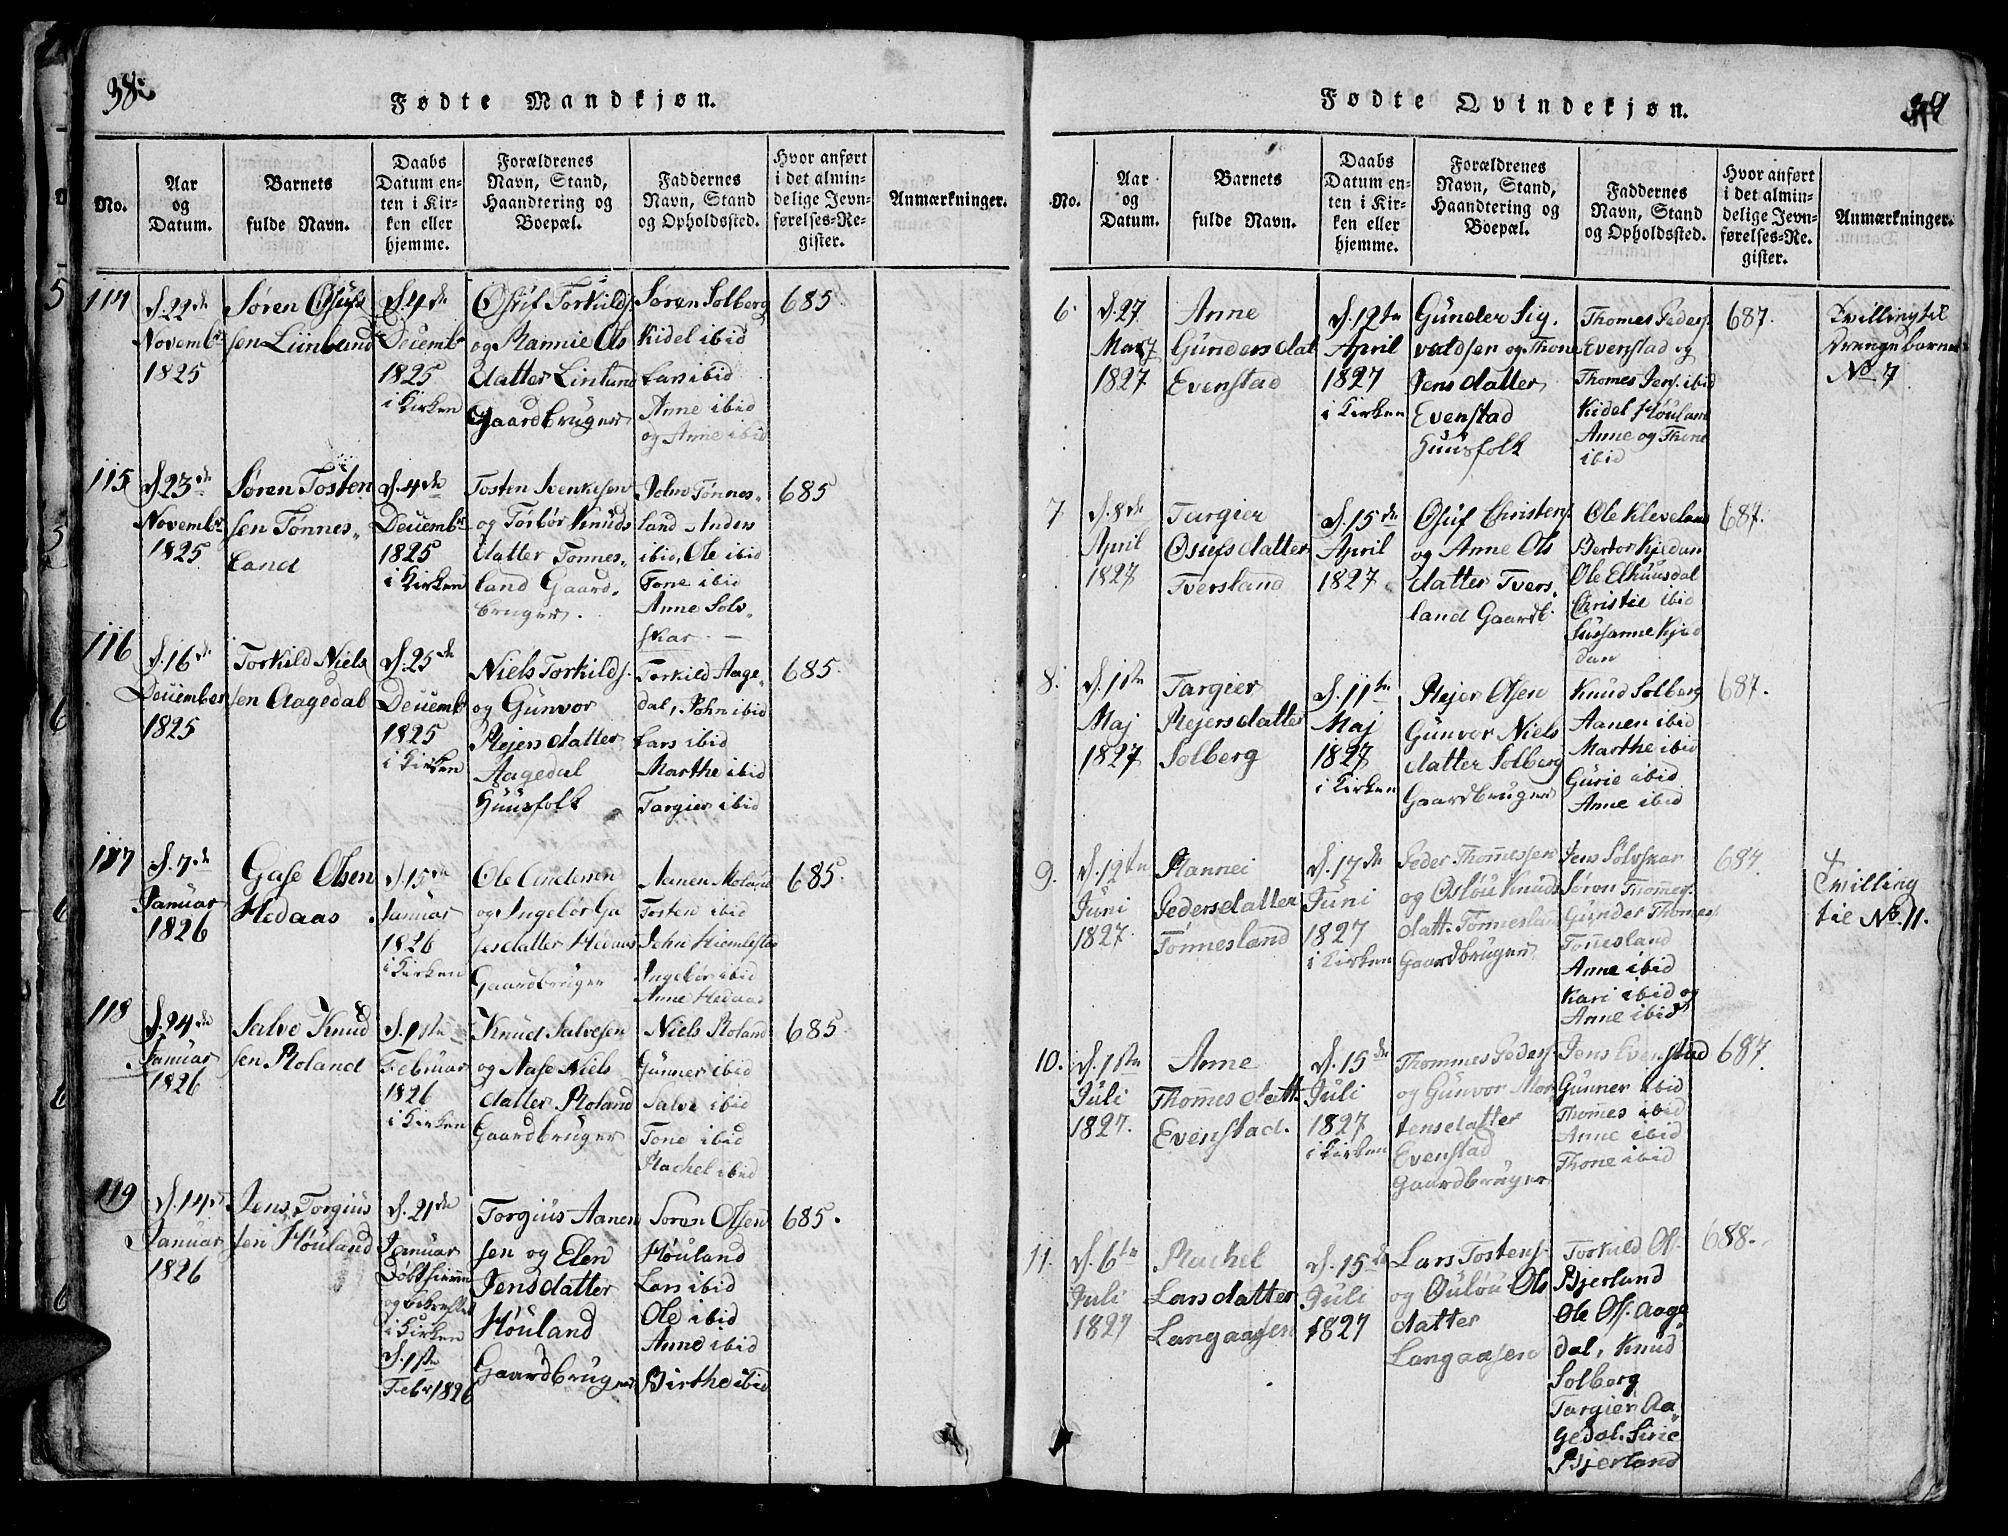 38.
Fødte Mandkjøn.
No.
Aar
og
Datum.
Barnets
fulde Navn.
Daabs
Datum en-
ten i Kir-
ken eller
hjemme.
Forældrenes
Navn, Stand,
Haandtering og
Boepæl.
Faddernes
Navn, Stand
og Opholdssted.
Hvor anført
i det almin-
delige Jevn-
førelses-Re-
gister.
Anmærkninger.
114
d. 22de
Novembr
1825
Søren Osufs
sen Liinland
d. 4de
Decembr
1825
i Kirken
Osuf Torkilds.
og Rannie Ols
datter Linland
Gaardbruger
Søren Solberg
Kidel ibid
Lars ibid
Anne ibid
og Anne ibid
685.
115
d. 23de
Novembr
1825
Søren Tosten
sen Tønnes-
land
d. 4de
Decembr
1825
i Kirken
Tosten Svenkesen
og Torbør Knuds
datter Tonnes-
land Gaard-
bruger.
John Tønnes-
land Anders
ibid, Ole ibid
Tone ibid
Anne Solv-
skar
685
116
d. 16de
December
1825
Torkild Niels
sen Aagedal
d. 25de
Decembr
1825
i Kirken
Niels Torkilds.
og Gunvor
Rejersdatter
Aagedal
Huusfolk
Torkild Aage-
dal, John ibid
Lars ibid
Marthe ibid
Targier ibid
685.
117
d. 7de
Januar
1826
Gase Olsen
Hedaas
d. 15de
Januar
1826
i Kirken
Ole Andersen
og Ingebør Ga
sesdatter Hedaas
Gaardbruger
Aanen Moland
Tosten ibid
John
Ingebør ibid
Anne Hedaas
685.
118
d. 24de
Januar
1826
Salve Knud
sen Roland
d. 1ste
Februar
1826
i Kirken
Knud Salvesen
og Aase Niels
datter Roland
Gaardbruger
Niels Roland
Gunner ibid
Salve ibid
Tone ibid
Rachel ibid
685.
119
d. 14de
Januar
1826
Jens Torgius
sen Høuland
d. 21de
Januar
Døbt hiemme
og
i Kirken
d. 1ste
Febr 1826
Torgius Aanen
sen og Elen
Jensdatter
Høuland
Gaardbruger
Soren Olsen
Høuland
Lars ibid
Ole ibid
Anne ibid
Birthe ibid
685.
39
Fødte Qvindekjøn.
No.
Aar
og
Datum.
Barnets
fulde Navn.
Daabs
Datum en-
ten i Kir-
ken eller
hjemme.
Forældrenes
Navn, Stand,
Haandtering og
Boepæl.
Faddernes
Navn, Stand
og Opholdssted.
Hvor anført
i det almin-
delige Jevn-
førelses-Re-
gister.
Anmærkninger.
6.
d. 27
Marz
1827
Anne
Gundersdat
Evenstad
d. 12te
April
1827
i Kirken
Gunder Sig.
valdsen og Thone
Jensdatter
Evenstad
Huusfolk
Thomes Peders.
Evenstad og
Thomes Jens. ibid
Kidel Høuland
Anne og Thone
ibid
687.
Tvilling til
Drengebarnet
No 7
7
d. 8de
April
1827
Targier
Osufsdatter
Tversland
d. 15de
April
1827
Osuf Christens.
og Anne Ols
datter Tvers-
land Gaardb.
Ole Kleveland
Bertor Kjedan
Ole Elhuusdal
Christie ibid
Susanne Kjed
dan
687.
8.
d. 1ste
Maj
1827
Targier
Rejersdatter
Solberg
d. 11te
Maj
1827
i Kirken
Rejer Olsen
Gunvor Niels
datter Solberg
Gaardbruger
Knud Solberg
Aanen ibid
Marthe ibid
Gurie ibid
Anne ibid
687.
9.
d. 12te
Juni
1827
Rannei
Pedersdatter
Tonnesland
d. 17de
Juni
1827
i Kirken
Peder Thommessen
og Oslou Knuds
datt. Tonnesland
Gaardbruger
Jens Solvskar
Søren Thomes.
Gunder Thomes
Tonnesland
Anne ibid
Kari ibid og
Anne ibid
687.
Tvilling
til No. 11.
10.
d. 1ste
Juli
1827.
Anne
Thomesdatt.
Evenstad.
d. 15de
Juli
1827
i Kirken
Thommes Peders.
og Gunvor Mor
tensdatter
Evenstad
Gaardbruger
Jens Evenstad
Gunner ibid
Thomes ibid
Anne ibid
Thone ibid
687
11.
d. 6te
Juli
1827
Rachel
Larsdatter
Langaasen
d. 15de
Juli
1827
Lars Tostens.
og Oulou Ols
datter
Langaasen
Torkild Ols.
Bjerland
Ole Ols. Aage
dal, Knud
Solberg
Targier Aa
gedal. Sirie
Bjerland
688.